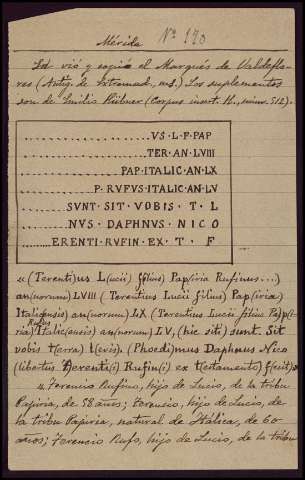 Mérida Nº 170
La vió y copió el Marqués de Valdeflo-
res (Antig. de Extremad., ms.) Los suplementos
son de Emilio Hübner (Corpus inscr. H., núm. 512).
..................VS·L·F·PAP
.................TER·AN·LVIII
............PAP·ITALIC·AN·LX
........P·RVFUS·ITALIC·AN·LV
....SVNT·SIT·VOBIS·T·L
....NVS·DAPHNVS·NICO
..ERENTI·RVFIN·EX·T·F
« (Terenti)us L(ucii) f(ilius) Pap(iria Rufinus...)
an(norum) LVIII (Terentius Lucii filius) Pap(iria)
Italic(ensis) an(norum) LX (Terentius Lucii filius Pa)p(i-
ria) Rufus Italic(ensis) an(norum) LV, (hic siti) sunt. Sit
vobis t(erra) l(evis). (Phoedi)mus Daphnus Nico
(libertus T)erenti(i) Rufin(i) ex t(estamento) f(ecit)»
« Terencio Rufino, hijo de Lucio, de la tribu
Papiria, de 58 años; Terencio, hijo de Lucio, de
la tribu Papiria, natural de Itálica, de 60
años; Terencio Rufo, hijo de Lucio, de la tribu